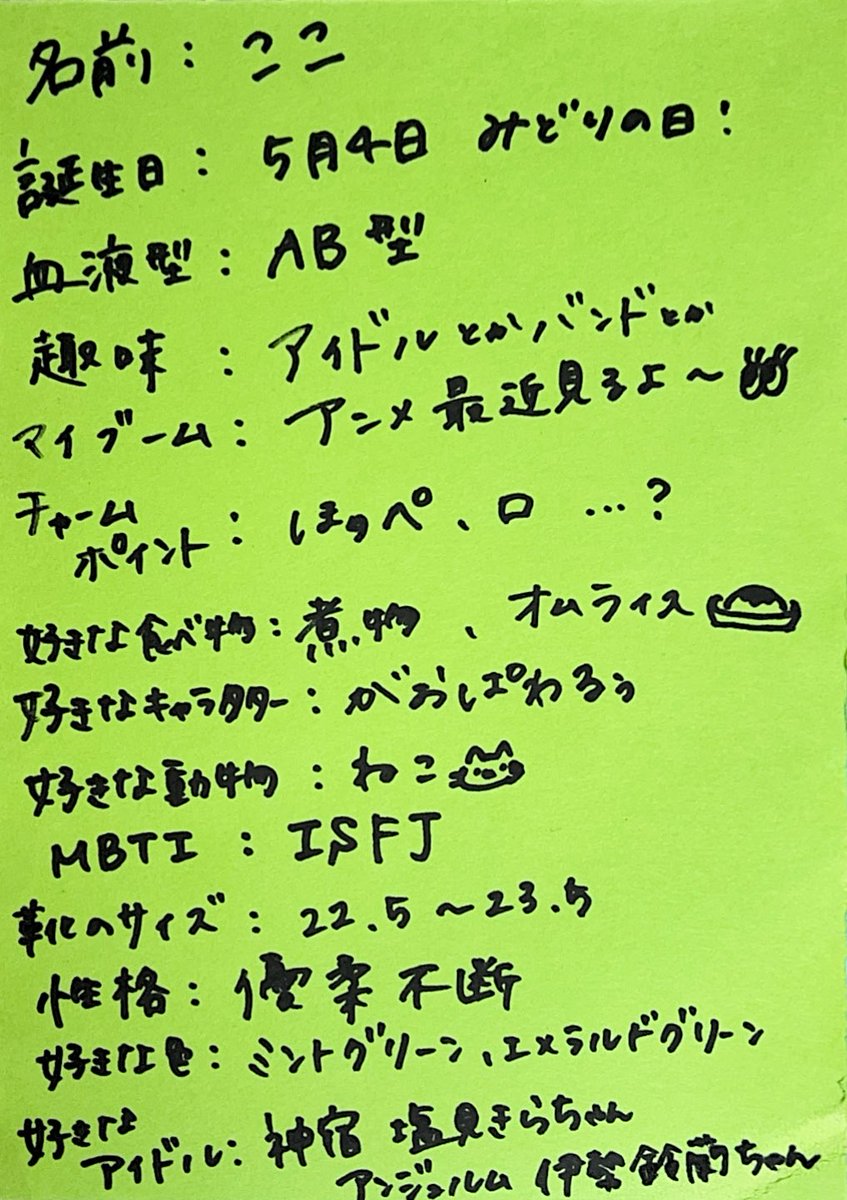 名前：ここ
誕生日：5月4日 みどりの日！
血液型：AB型
趣味：アイドルとかバンドとか
マイブーム：アニメ最近見るよ〜
チャームポイント：ほっぺ、口…？
好きな食べ物：煮物、オムライス
好きなキャラクター：がおぱわるぅ
好きな動物：ねこ
MBTI：ISFJ
靴のサイズ：22.5〜23.5
性格：優柔不断
好きな色：ミントグリーン、エメラルドグリーン
好きなアイドル：神宿 塩見きらちゃん
アンジュルム 伊勢鈴蘭ちゃん